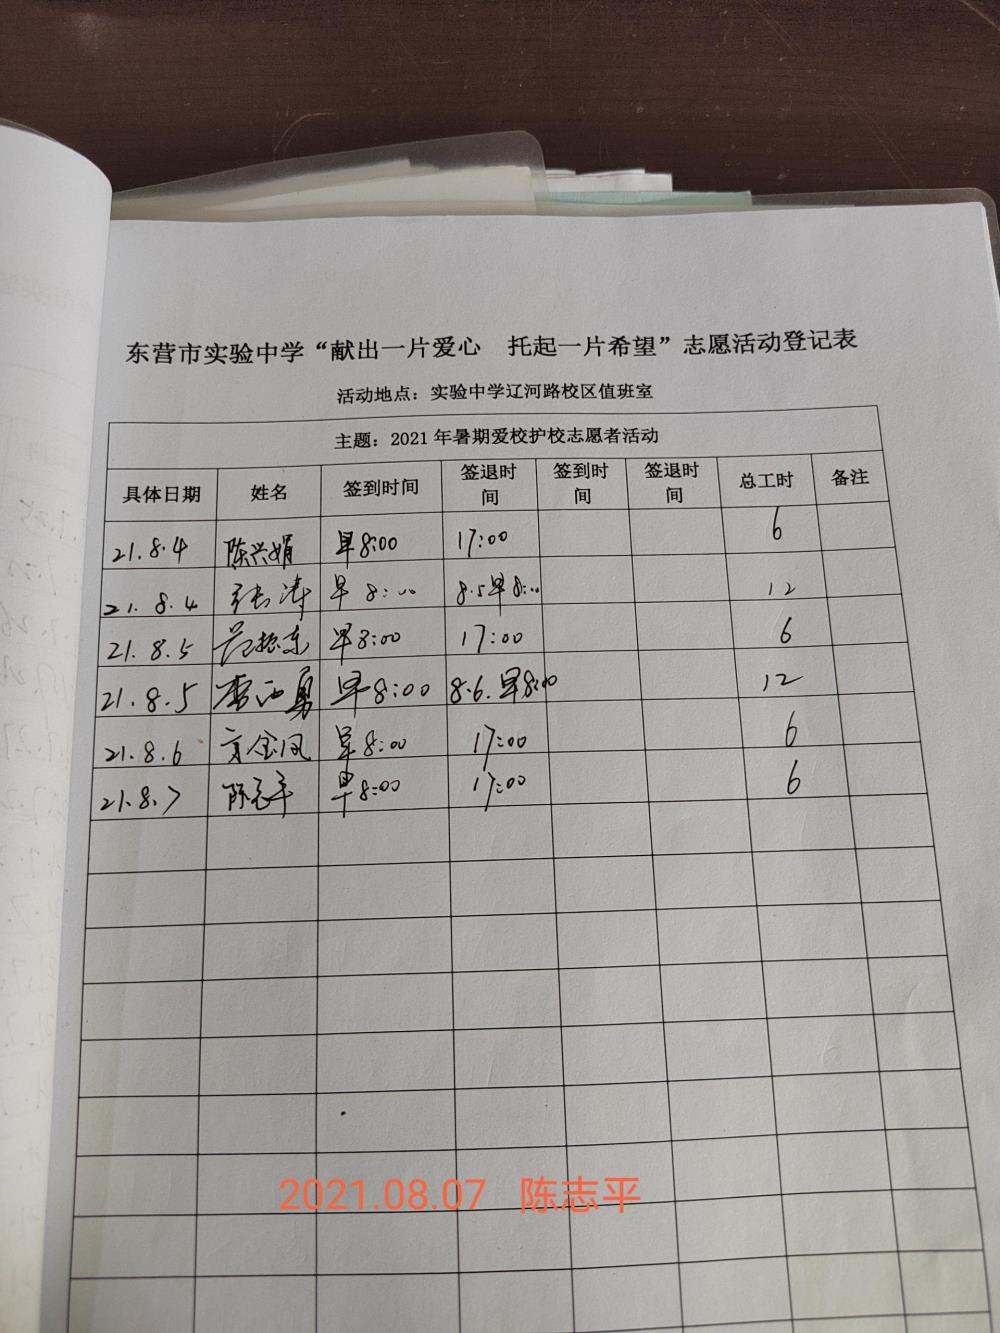 东营市实验中学“献出一片爱心 托起一片希望”志愿活动登记表
活动地点：实验中学辽河路校区值班室
主题：2021年暑期爱校护校志愿者活动
具体日期 姓名 签到时间 签退时间 签到时间 签退时间 总工时 备注
21.8.4 陈兴娟 早8:00 17:00 6
21.8.4 张涛 早8:00 8.5早8:00 12
21.8.5 范振东 早8:00 17:00 6
21.8.5 早8:00 8.6.早8:00 12
21.8.6 金凤 早8:00 17:00 6
21.8.7 陈志平 早8:00 17:00 6
2021.08.07 陈志平